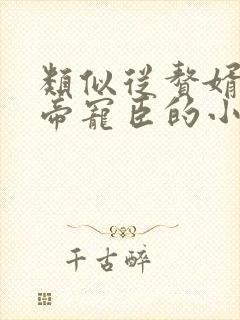 類似從贅婿
帝寵臣的小
千古醉